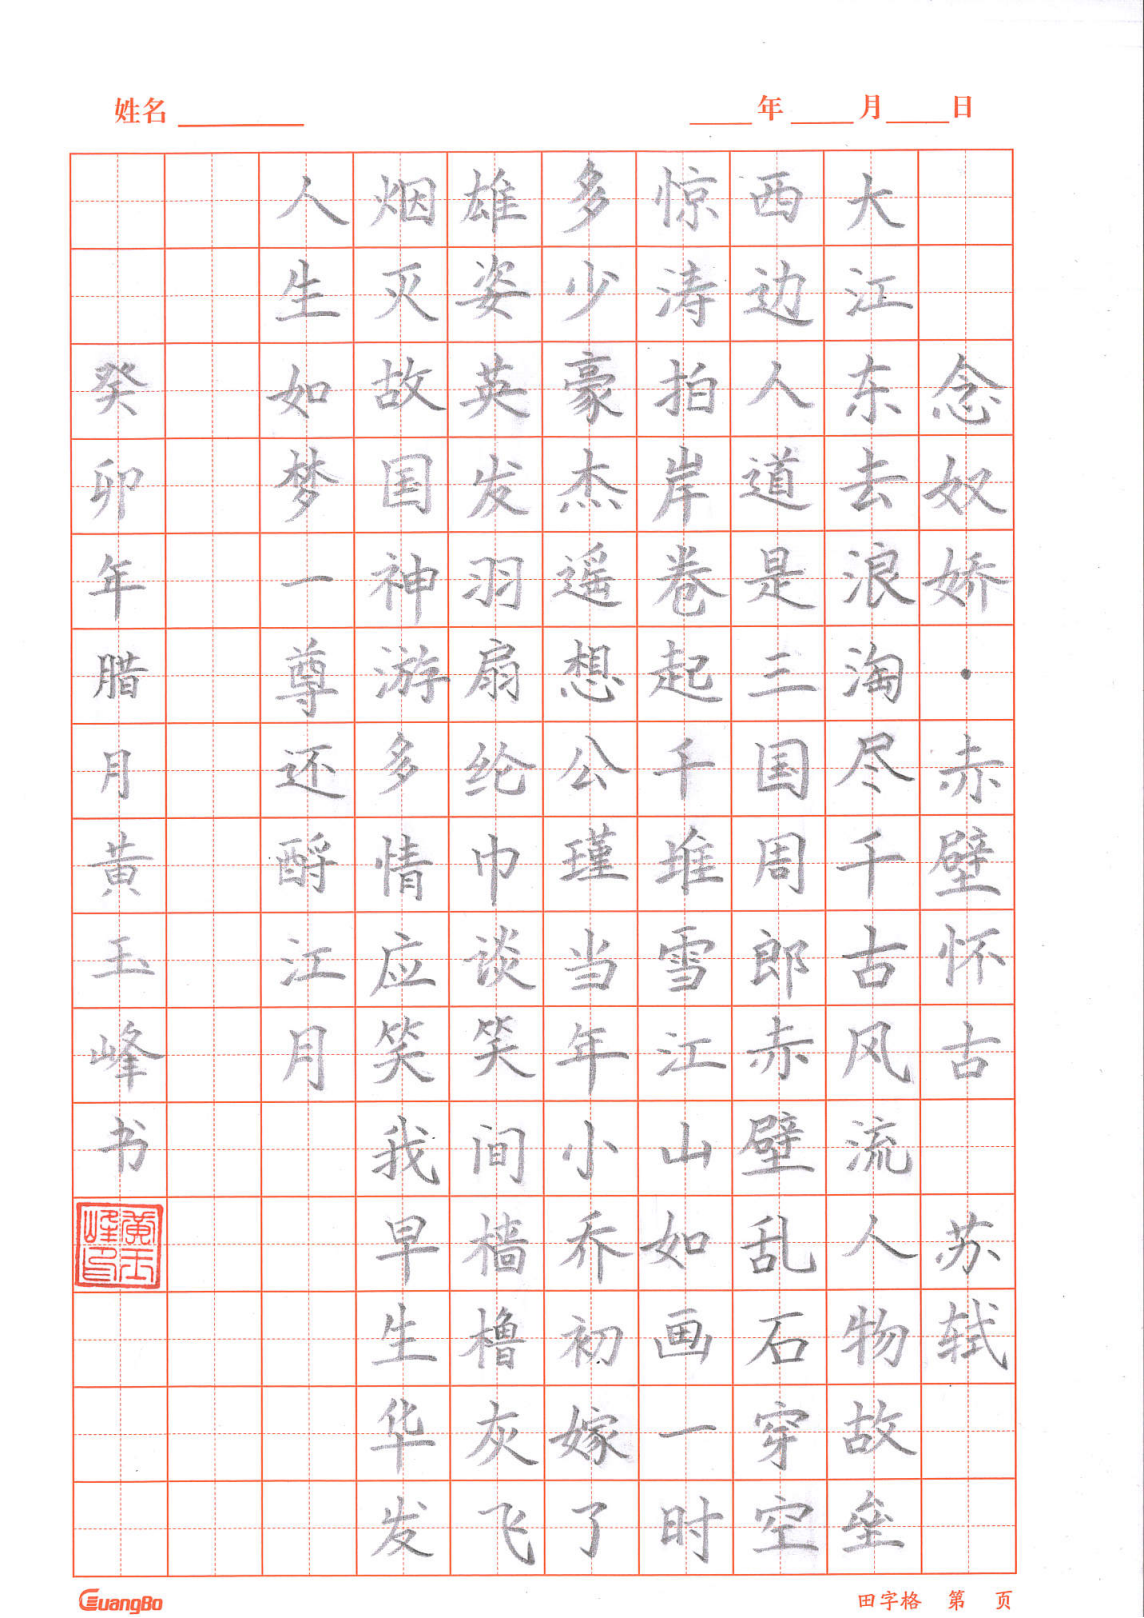 姓名 年 月 日
念奴娇·赤壁怀古 苏轼
大江东去浪淘尽千古风流人物故垒
西边人道是三国周郎赤壁乱石穿空
惊涛拍岸卷起千堆雪江山如画一时
多少豪杰遥想公瑾当年小乔初嫁了
雄姿英发羽扇纶巾谈笑间樯橹灰飞
烟灭故国神游多情应笑我早生华发
人生如梦一尊还酹江月
癸卯年腊月黄玉峰书
黄玉峰印
GuangBo
田字格 第 页